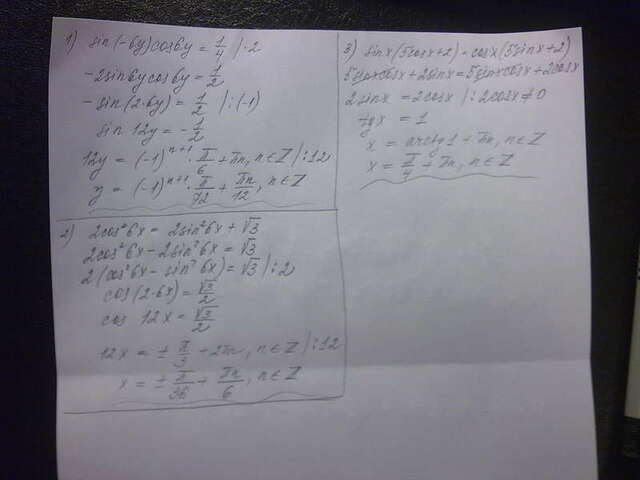 1) sin(-6y)cos6y = 1/4 |·2
-2sin6ycos6y = 1/2
-sin(2·6y) = 1/2 |:(-1)
sin 12y = -1/2
12y = (-1)^(n+1) · π/6 + πn, n∈Z |:12
y = (-1)^(n+1) · π/72 + πn/12, n∈Z
2) 2cos²6x = 2sin²6x + √3
2cos²6x - 2sin²6x = √3
2(cos²6x - sin²6x) = √3 |:2
cos(2·6x) = √3/2
cos 12x = √3/2
12x = ± π/3 + 2πn, n∈Z |:12
x = ± π/36 + πn/6, n∈Z
3) sinx(5cosx+2) = cosx(5sinx+2)
5sinxcosx + 2sinx = 5sinxcosx + 2cosx
2sinx = 2cosx |:2cosx≠0
tgx = 1
x = arctg1 + πn, n∈Z
x = π/4 + πn, n∈Z